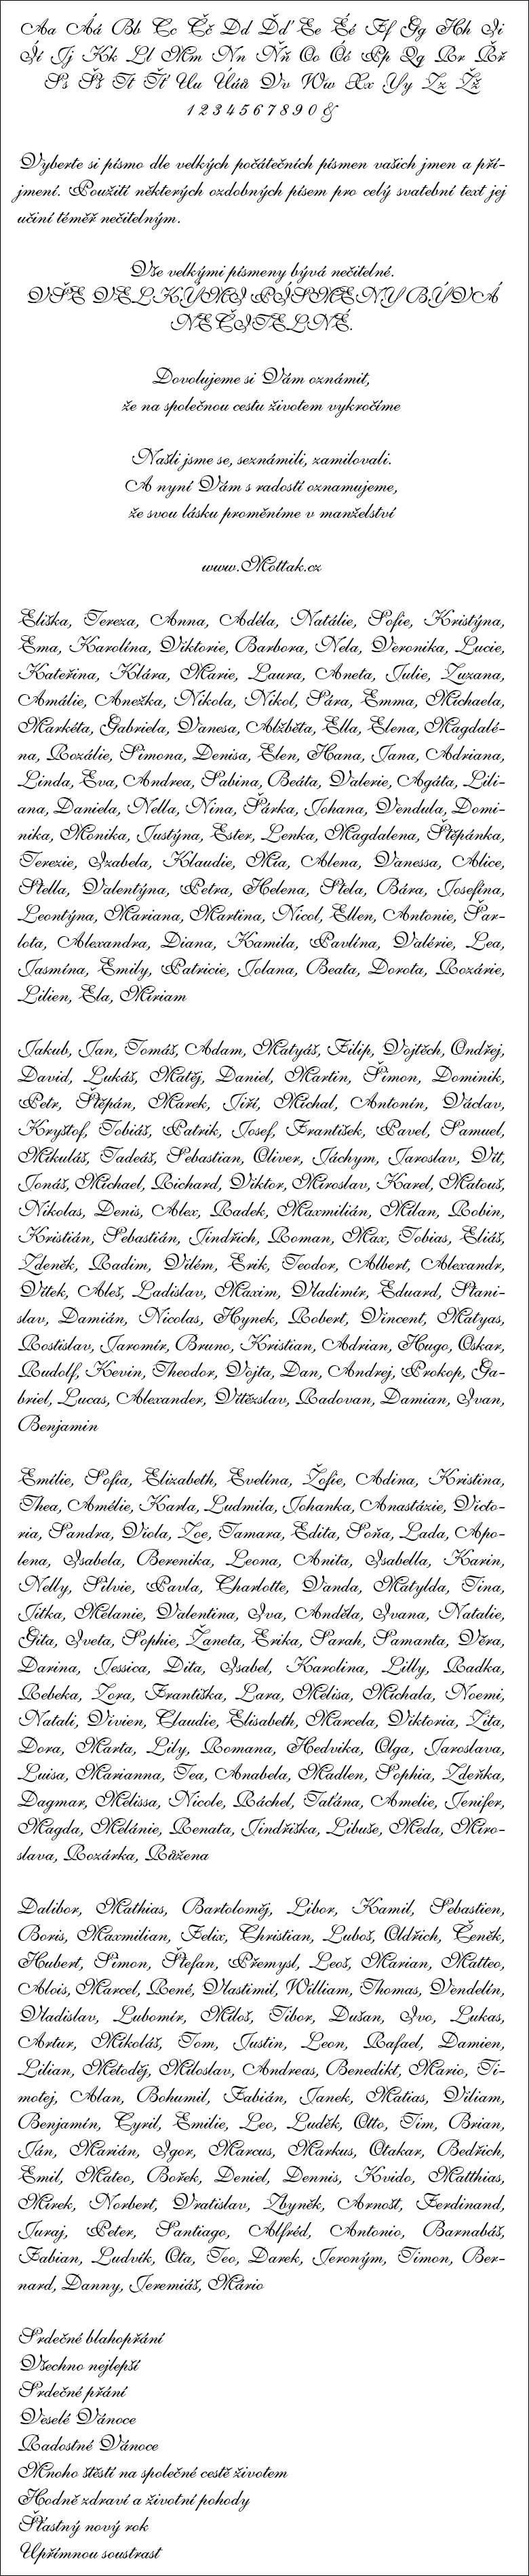 Aa Áá Bb Cc Čč Dd Ďď Ee Éé Ff Gg Hh Ii
Íí Jj Kk Ll Mm Nn Ňň Oo Óó Pp Qq Rr Řř
Ss Šš Tt Ťť Uu Úúů Vv Ww Xx Yy Zz Žž
1 2 3 4 5 6 7 8 9 0 &
Vyberte si písmo dle velkých počátečních písmen vašich jmen a pří-
jmení. Použití některých ozdobných písem pro celý svatební text jej
učiní téměř nečitelným.
Vše velkými písmeny bývá nečitelné.
VŠE VELKÝMI PÍSMENY BÝVÁ
NEČITELNÉ.
Dovolujeme si Vám oznámit,
že na společnou cestu životem vykročíme
Našli jsme se, seznámili, zamilovali.
A nyní Vám s radostí oznamujeme,
že svou lásku proměníme v manželství
www.Mottak.cz
Eliška, Tereza, Anna, Adéla, Natálie, Sofie, Kristýna,
Ema, Karolína, Viktorie, Barbora, Nela, Veronika, Lucie,
Kateřina, Klára, Marie, Laura, Aneta, Julie, Zuzana,
Amálie, Anežka, Nikola, Nikol, Sára, Emma, Michaela,
Markéta, Gabriela, Vanesa, Alžběta, Ella, Elena, Magdalé-
na, Rozálie, Simona, Denisa, Elen, Hana, Jana, Adriana,
Linda, Eva, Andrea, Sabina, Beáta, Valerie, Agáta, Lili-
ana, Daniela, Nella, Nina, Šárka, Johana, Vendula, Domi-
nika, Monika, Justýna, Ester, Lenka, Magdalena, Štěpánka,
Terezie, Izabela, Klaudie, Mia, Alena, Vanessa, Alice,
Stella, Valentýna, Petra, Helena, Stela, Bára, Josefína,
Leontýna, Mariana, Martina, Nicol, Ellen, Antonie, Šar-
lota, Alexandra, Diana, Kamila, Pavlína, Valérie, Lea,
Jasmína, Emily, Patricie, Jolana, Beata, Dorota, Rozárie,
Lilien, Ela, Miriam
Jakub, Jan, Tomáš, Adam, Matyáš, Filip, Vojtěch, Ondřej,
David, Lukáš, Matěj, Daniel, Martin, Šimon, Dominik,
Petr, Štěpán, Marek, Jiří, Michal, Antonín, Václav,
Kryštof, Tobiáš, Patrik, Josef, František, Pavel, Samuel,
Mikuláš, Tadeáš, Sebastian, Oliver, Jáchym, Jaroslav, Vít,
Jonáš, Michael, Richard, Viktor, Miroslav, Karel, Matouš,
Nikolas, Denis, Alex, Radek, Maxmilián, Milan, Robin,
Kristián, Sebastián, Jindřich, Roman, Max, Tobias, Eliáš,
Zdeněk, Radim, Vilém, Erik, Teodor, Albert, Alexandr,
Vítek, Aleš, Ladislav, Maxim, Vladimír, Eduard, Stani-
slav, Damián, Nicolas, Hynek, Robert, Vincent, Matyas,
Rostislav, Jaromír, Bruno, Kristian, Adrian, Hugo, Oskar,
Rudolf, Kevin, Theodor, Vojta, Dan, Andrej, Prokop, Ga-
briel, Lucas, Alexander, Vítězslav, Radovan, Damian, Ivan,
Benjamin
Emílie, Sofia, Elizabeth, Evelína, Žofie, Adina, Kristina,
Thea, Amélie, Karla, Ludmila, Johanka, Anastázie, Victo-
ria, Sandra, Viola, Zoe, Tamara, Edita, Soňa, Lada, Apo-
lena, Isabela, Berenika, Leona, Anita, Isabella, Karin,
Nelly, Silvie, Pavla, Charlotte, Vanda, Matylda, Tina,
Jitka, Mélanie, Valentina, Iva, Anděla, Ivana, Natalie,
Gita, Iveta, Sophie, Žaneta, Erika, Sarah, Samanta, Věra,
Darina, Jessica, Dita, Isabel, Karolina, Lilly, Radka,
Rebeka, Zora, Františka, Lara, Melisa, Michala, Noemi,
Natali, Vivien, Claudie, Elisabeth, Marcela, Viktoria, Zita,
Dora, Marta, Lily, Romana, Hedvika, Olga, Jaroslava,
Luisa, Marianna, Tea, Anabela, Madlen, Sophia, Zdeňka,
Dagmar, Melissa, Nicole, Ráchel, Taťána, Amelie, Jenifer,
Magda, Melánie, Renata, Jindřiška, Libuše, Meda, Miro-
slava, Rozárka, Růžena
Dalibor, Mathias, Bartoloměj, Libor, Kamil, Sebastien,
Boris, Maxmilian, Felix, Christian, Luboš, Oldřich, Čeněk,
Hubert, Simon, Štefan, Přemysl, Leoš, Marian, Matteo,
Alois, Marcel, René, Vlastimil, William, Thomas, Vendelín,
Vladislav, Lubomír, Miloš, Tibor, Dušan, Ivo, Lukas,
Artur, Mikoláš, Tom, Justin, Leon, Rafael, Damien,
Lilian, Metoděj, Miloslav, Andreas, Benedikt, Mario, Ti-
motej, Alan, Bohumil, Fabián, Janek, Matias, Viliam,
Benjamín, Cyril, Emilie, Leo, Luděk, Otto, Tim, Brian,
Ján, Marián, Igor, Marcus, Markus, Otakar, Bedřich,
Emil, Mateo, Bořek, Deniel, Dennis, Kvido, Matthias,
Mirek, Norbert, Vratislav, Zbyněk, Arnošt, Ferdinand,
Juraj, Peter, Santiago, Alfréd, Antonio, Barnabáš,
Fabian, Ludvík, Ota, Teo, Darek, Jeroným, Timon, Ber-
nard, Danny, Jeremiáš, Mário
Srdečné blahopřání
Všechno nejlepší
Srdečné přání
Veselé Vánoce
Radostné Vánoce
Mnoho štěstí na společné cestě životem
Hodně zdraví a životní pohody
Šťastný nový rok
Upřímnou soustrast